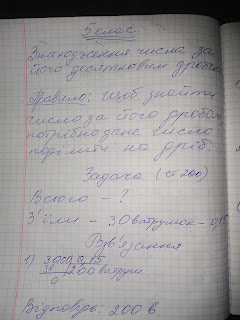 5 клас
Знаходження числа за
його десятковим дробом
Правило: Щоб знайти
число за його дробом
потрібно дане число
поділити на дріб.
Задача (ст 200)
Всього - ?
З'їли - 30 ватрушок - 0,15
Розв'язання
1) 3000,15
30 200 ватруш.
0
Відповідь: 200 в.